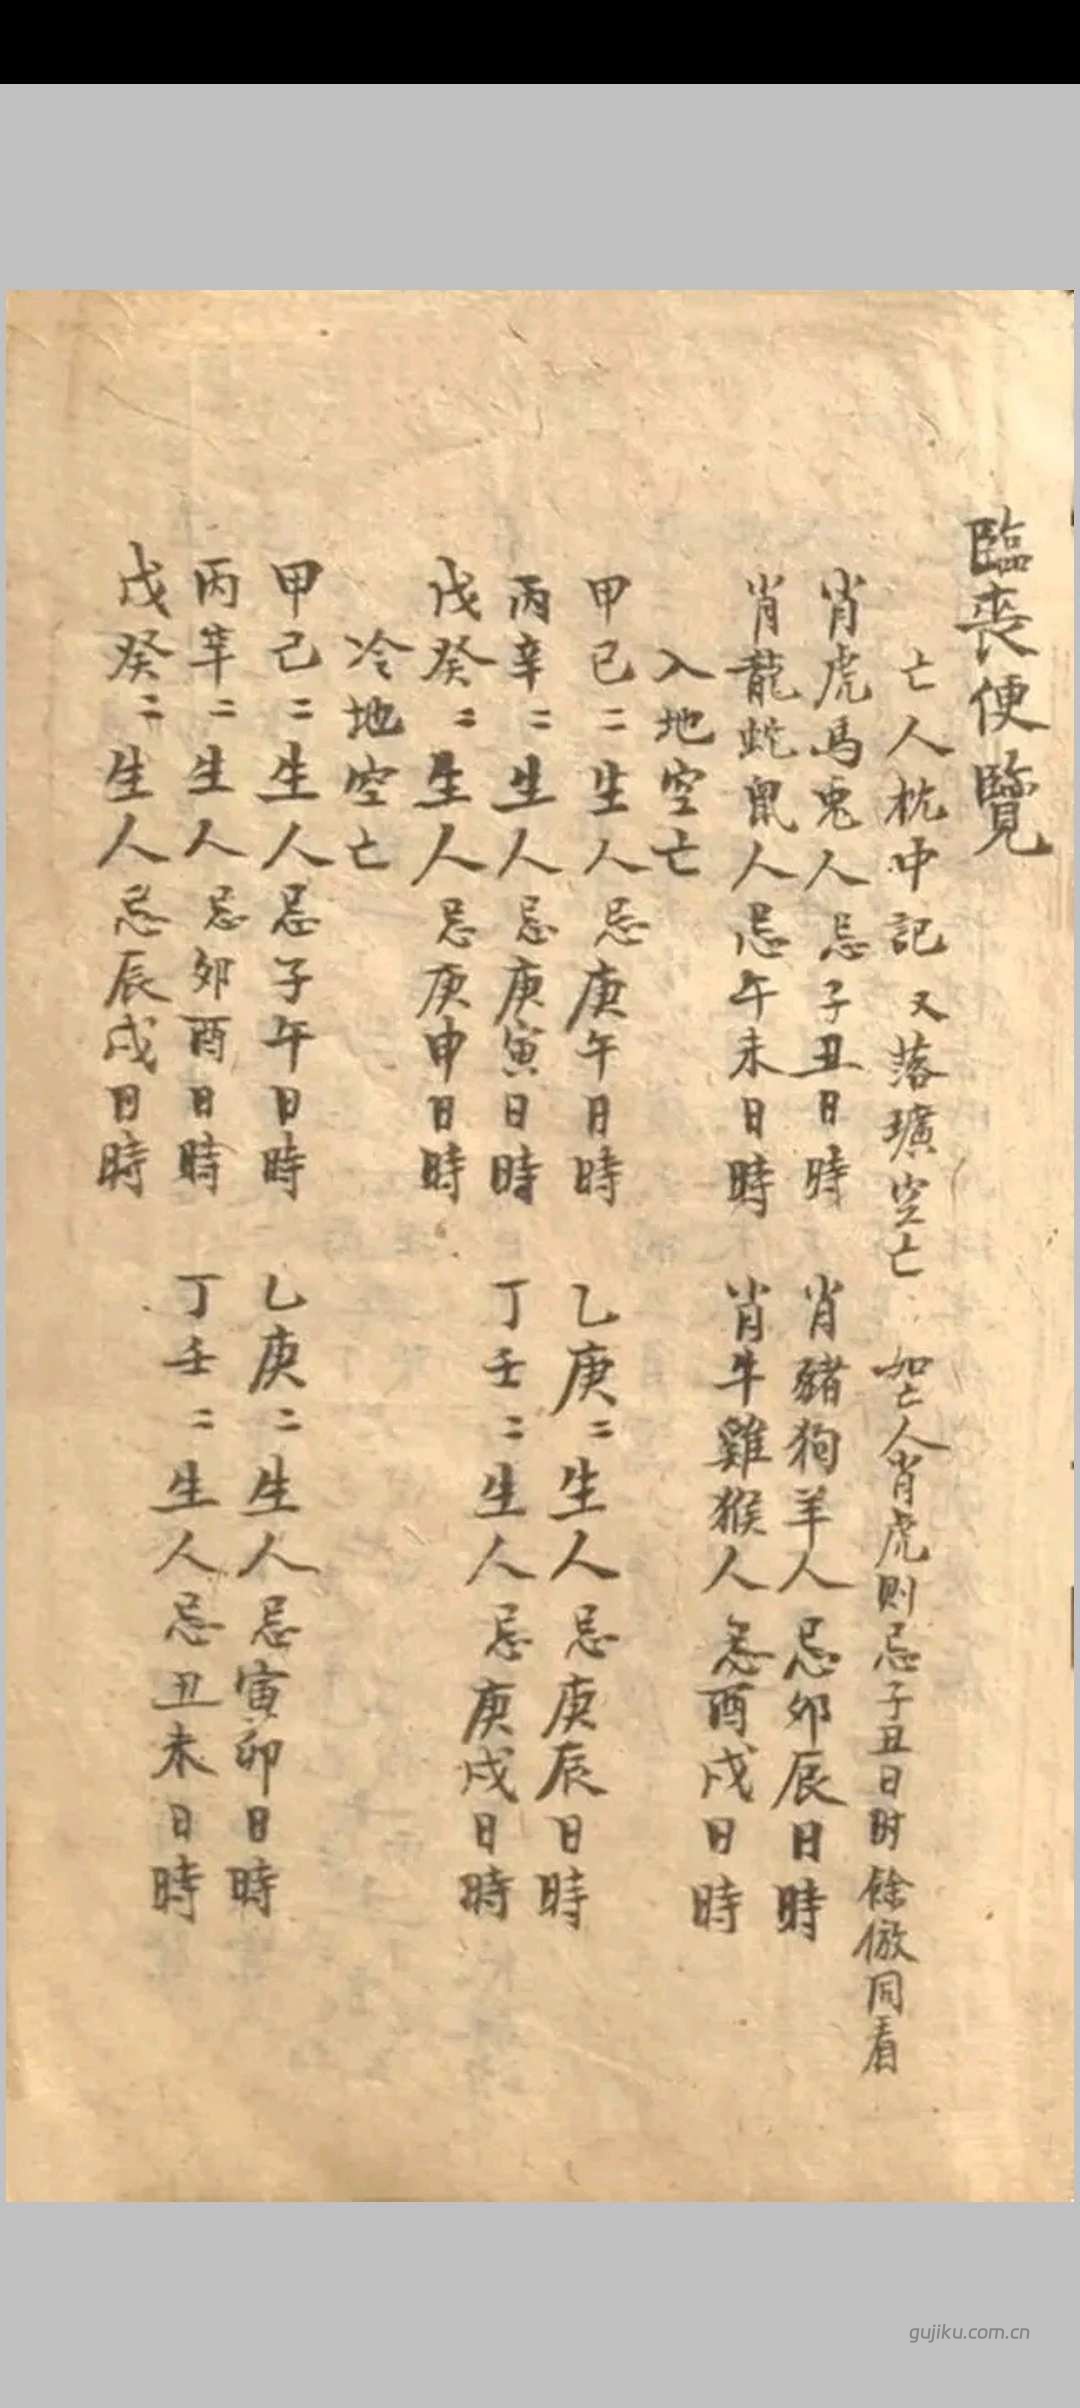 臨喪便覽
亡人枕中記 又落壙空亡 如亡人肖虎则忌子丑日时餘倣同看
肖虎馬兎人忌子丑日時 肖豬狗羊人忌卯辰日時
肖龍蛇鼠人忌午未日時 肖牛雞猴人忌酉戌日時
入地空亡
甲己二生人忌庚午日時 乙庚二生人忌庚辰日時
丙辛二生人忌庚寅日時 丁壬二生人忌庚戌日時
戊癸二生人忌庚申日時
冷地空亡
甲己二生人忌子午日時 乙庚二生人忌寅卯日時
丙辛二生人忌卯酉日時 丁壬二生人忌丑未日時
戊癸二生人忌辰戌日時
gujiku.com.cn